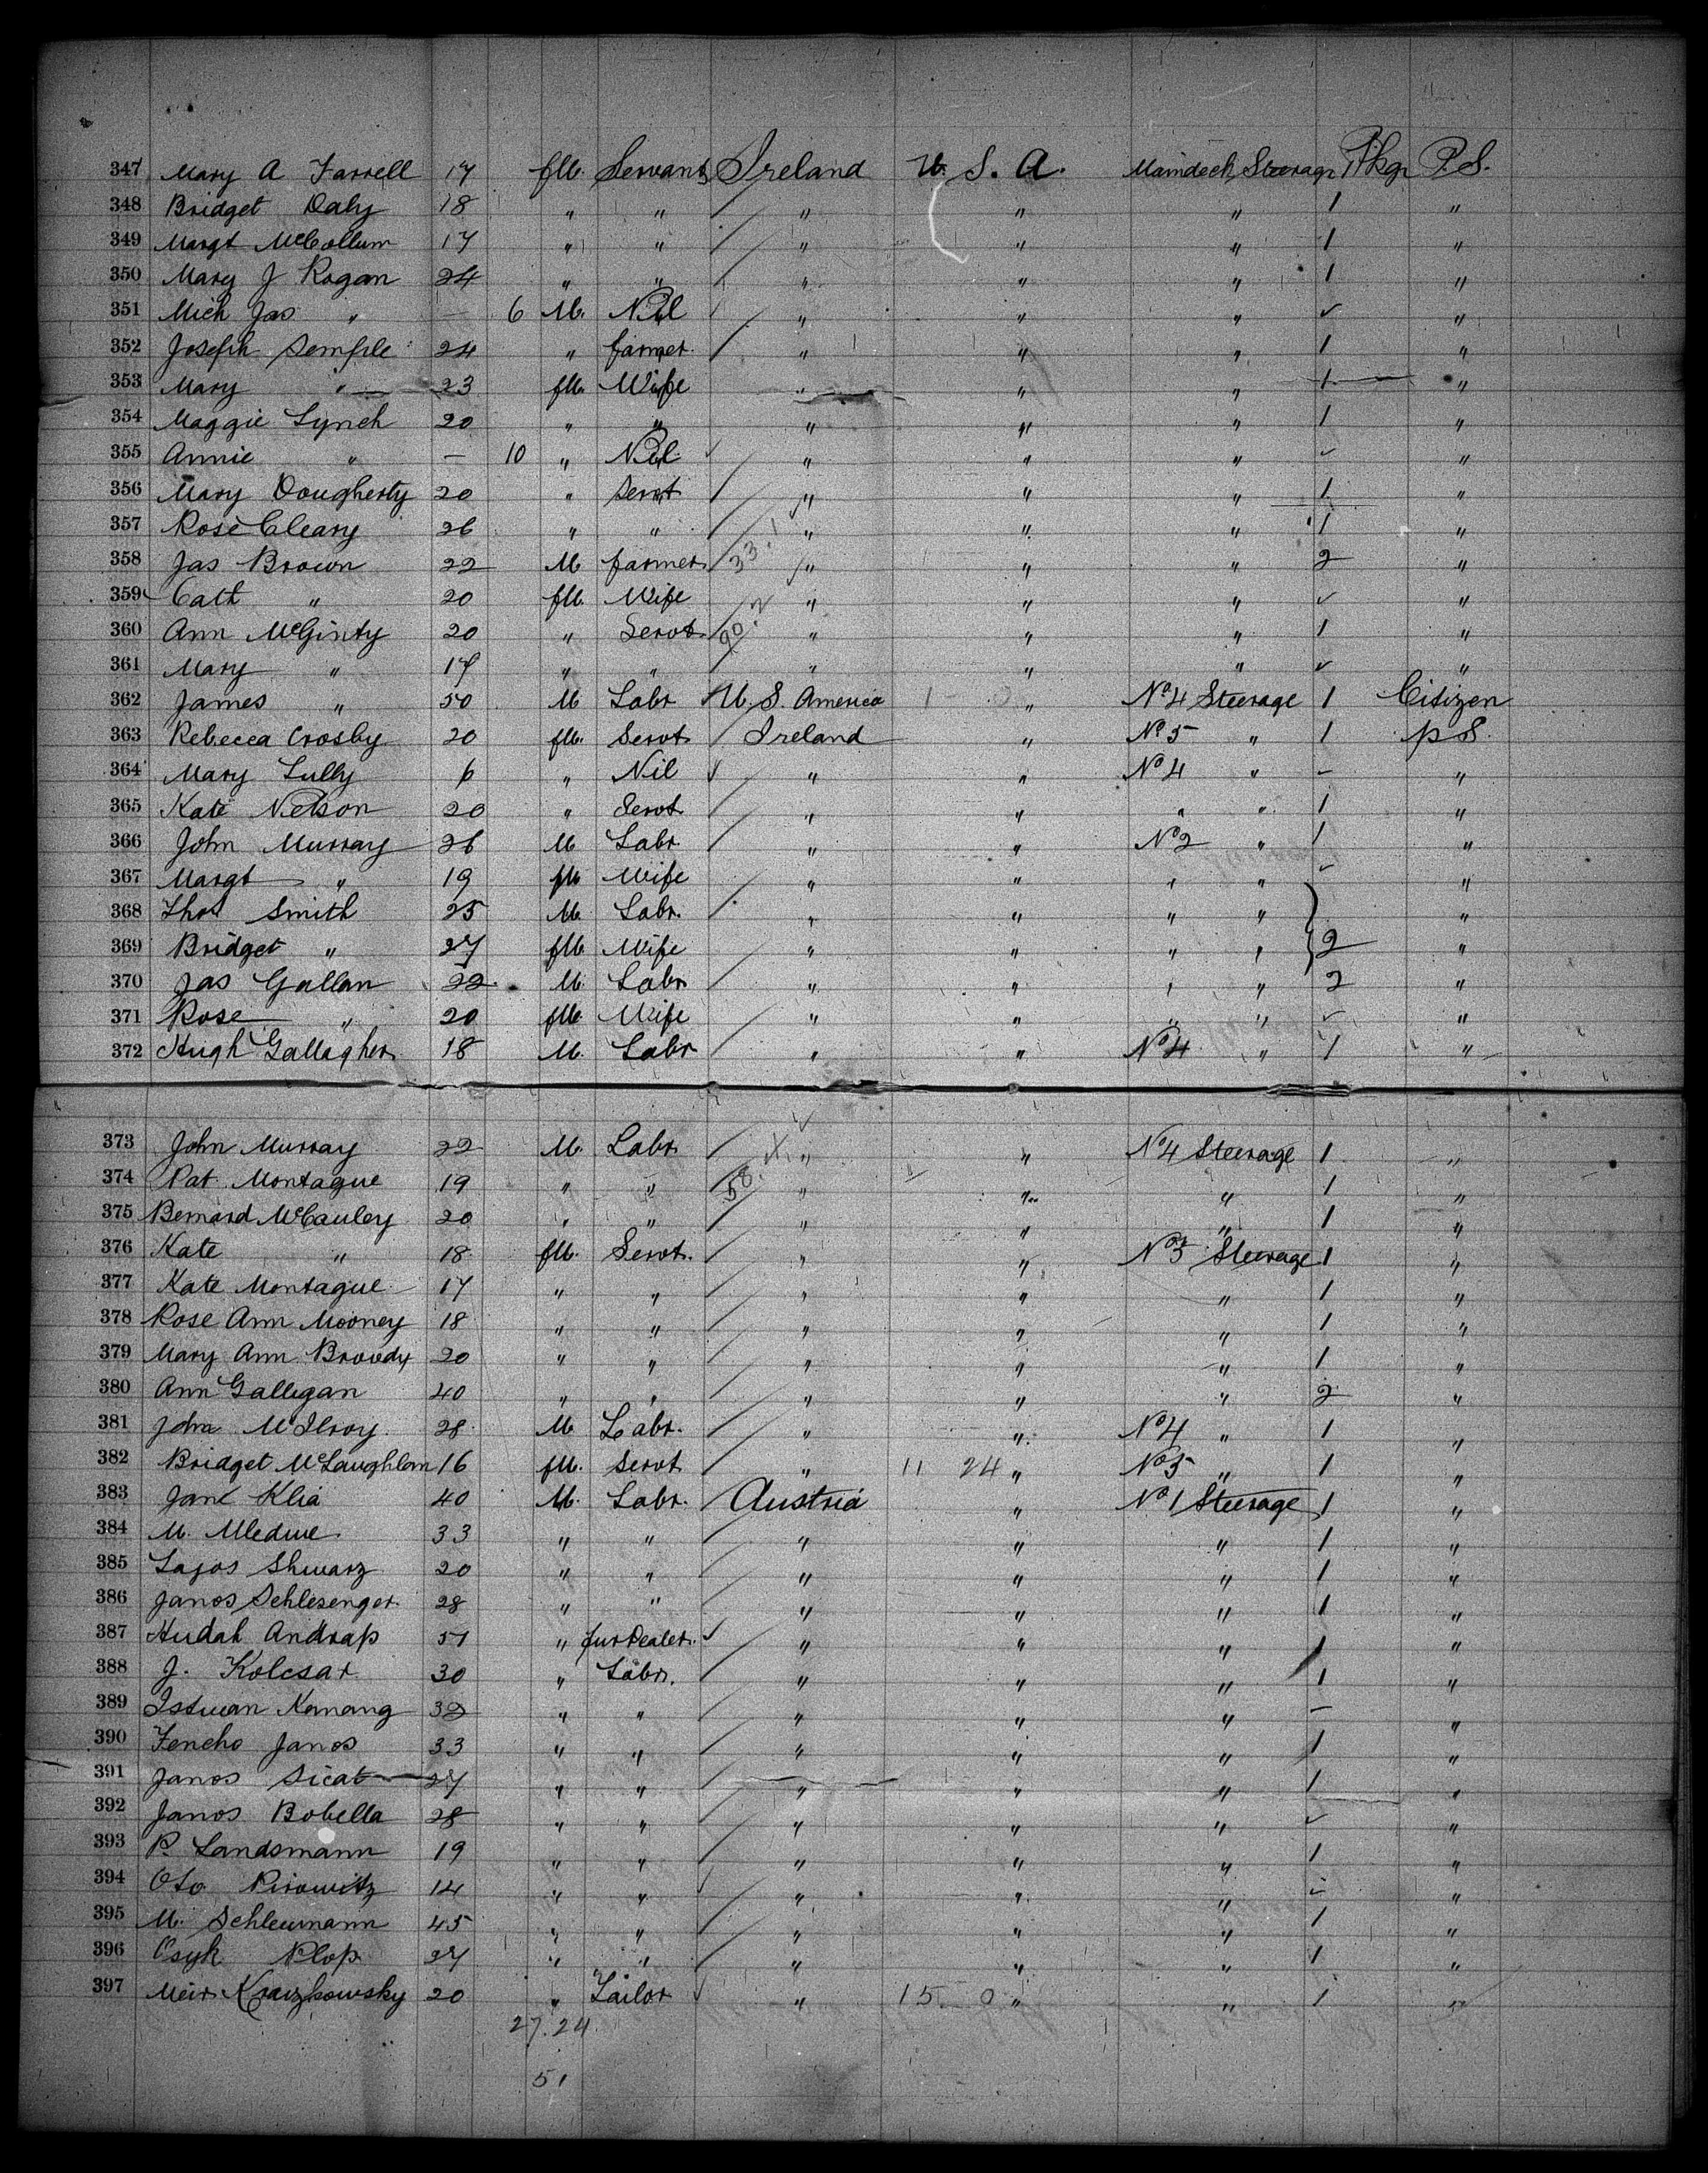 347 Mary A Farrell 17 fM. Servant Ireland U. S. A. Maindeck Steerage 1 Pkge P.S.
348 Bridget Daly 18 " " " " " 1 "
349 Margt McCollum 17 " " " " " 1 "
350 Mary J Rogan 24 " " " " " 1 "
351 Mich Jas " — 6 M. Nil " " " ✓ "
352 Joseph Semple 24 " farmer " " " 1 "
353 Mary " 23 fM. Wife " " " 1 "
354 Maggie Lynch 20 " " " " " 1 "
355 Annie " — 10 " Nil ✓ " " " ✓ "
356 Mary Dougherty 20 " Servt " " " 1 "
357 Rose Cleary 26 " " " " " 1 "
358 Jas Brown 22 M farmer 33.1 " " " 2 "
359 Cath " 20 fM. Wife " " " ✓ "
360 Ann McGinty 20 " Servt 90.2 " " " 1 "
361 Mary " 17 " " " " " ✓ "
362 James " 50 M Labr U. S. America 1 0 " No 4 Steerage 1 Citizen
363 Rebecca Crosby 20 fM. Servt Ireland " No 5 " 1 p S.
364 Mary Lully 6 " Nil ✓ " " No 4 " – "
365 Kate Nelson 20 " Servt " " " " 1 "
366 John Murray 26 M Labr. " " No 2 " 1 "
367 Margt " 19 fM Wife " " " " ✓ "
368 Thos Smith 25 M. Labr. " " " " "
369 Bridget " 27 fM. Wife " " " " } 2 "
370 Jas Gallan 22 M. Labr " " " " 2 "
371 Rose " 20 fM. Wife " " " " ✓ "
372 Hugh Gallagher 18 M. Labr " " No 4 " 1 "
373 John Murray 22 M. Labr X. " " No 4 Steerage 1 "
374 Pat Montague 19 " " 58. " " " 1 "
375 Bernard McCauley 20 " " " " " 1 "
376 Kate " 18 fM. Servt. " " No 5 Steerage 1 "
377 Kate Montague 17 " " " " " 1 "
378 Rose Ann Mooney 18 " " " " " 1 "
379 Mary Ann Browdy 20 " " " " " 1 "
380 Ann Galligan 40 " " " " " 2 "
381 John McIlroy 28 M Labr. " " No 4 " 1 "
382 Bridget McLaughlan 16 fM. Servt " 11 24 " No 5 " 1 "
383 Jane Klia 40 M. Labr. Austria " No 1 Steerage 1 "
384 M. Medwe 33 " " " " " 1 "
385 Lajos Shwarz 20 " " " " " 1 "
386 Janos Schlesenger 28 " " " " " 1 "
387 Hudah Andrap 51 " fur Dealer. ✓ " " " 1 "
388 J. Kolcsar 30 " Labr. " " " 1 "
389 Istwan Kamang 32 " " " " " – "
390 Fencho Janos 33 " " " " " 1 "
391 Janos Sicat 27 " " " " " 1 "
392 Janos Bobella 28 " " " " " ✓ "
393 P. Landsmann 19 " " " " " 1 "
394 Oto Pirowitz 14 " " ✓ " " " ✓ "
395 M. Schleumann 45 " " " " " 1 "
396 Osyk Plop 27 " " " " " 1 "
397 Meir Krawzkowsky 20 " Tailor ✓ " 15. 0 " " 1 "
27.24
51